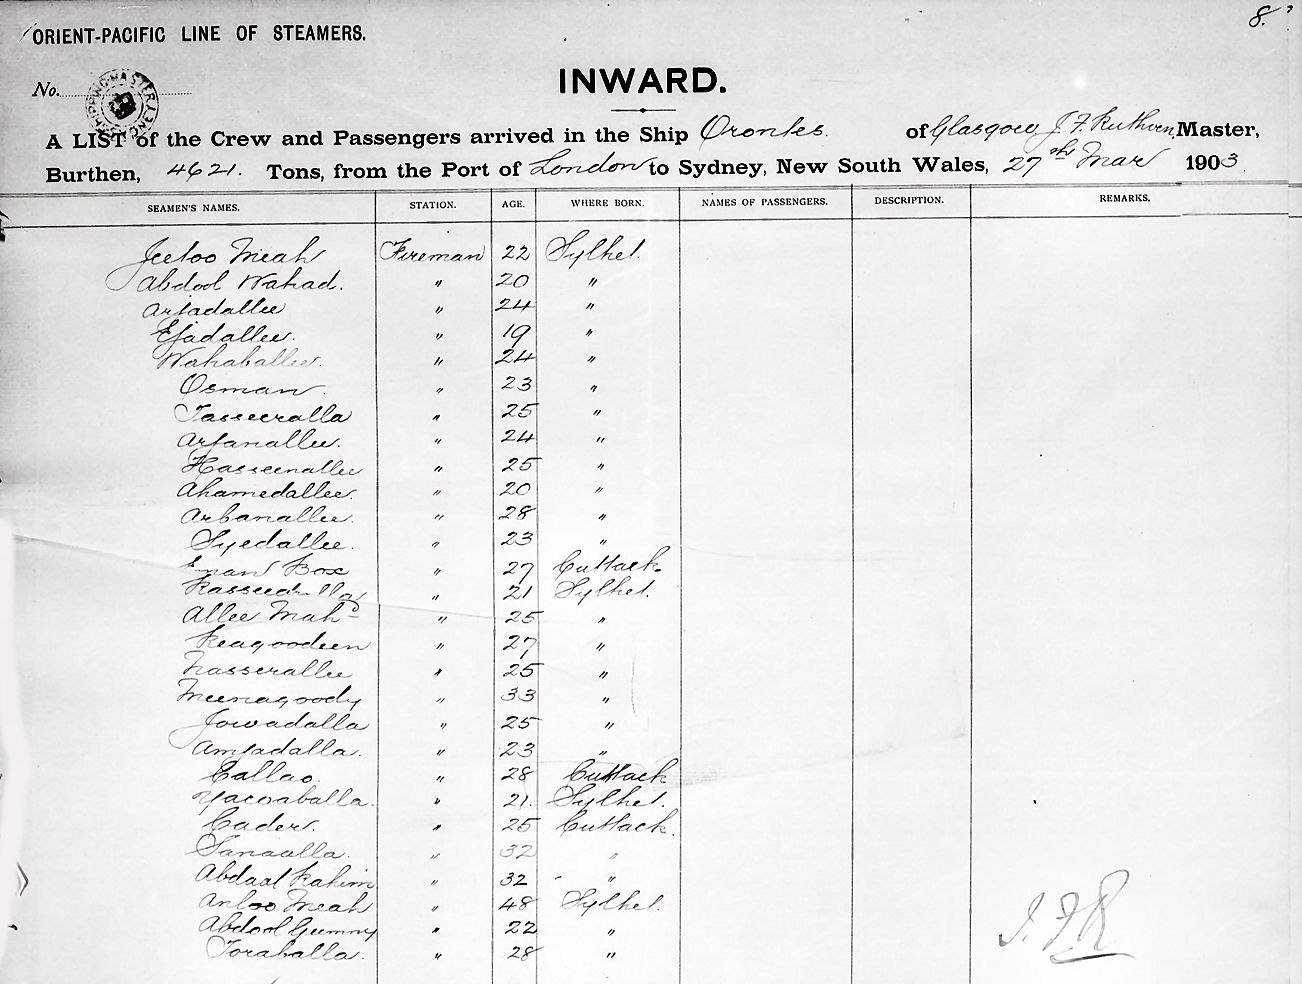 8.
ORIENT-PACIFIC LINE OF STEAMERS.
No.
INWARD.
A LIST of the Crew and Passengers arrived in the Ship Orontes. of Glasgow J. F. Ruthven, Master,
Burthen, 4621. Tons, from the Port of London to Sydney, New South Wales, 27th Mar 1903.
SEAMEN'S NAMES. STATION. AGE. WHERE BORN. NAMES OF PASSENGERS. DESCRIPTION. REMARKS.
Jeetoo Meah Fireman 22 Sylhet.
Abdool Wahad. " 20 "
Arfadallee " 24 "
Efadallee. " 19 "
Wahaballee. " 24 "
Osman. " 23 "
Tasseeralla " 25 "
Arfanallee. " 24 "
Hasseenallee " 25 "
Ahamedallee. " 20 "
Arbanallee. " 28 "
Syedallee. " 23 "
Eman Box " 27 Cuttack.
" 21 Sylhet.
Allee Mahd " 25 "
Keagoodeen " 27 "
Nasserallee " 25 "
Meenagoody " 33 "
Jowadalla " 25 "
Amjadalla. " 23 "
Callao. " 28 Cuttack
Yacoaballa. " 21. Sylhet.
Cader. " 25 Cuttack.
Sanaulla. " 32 "
Abdaal Rahim " 32 "
Anloo Meah " 48 Sylhet.
Abdool Gunny " 22 "
Toraballa. " 28 "
J. F. R